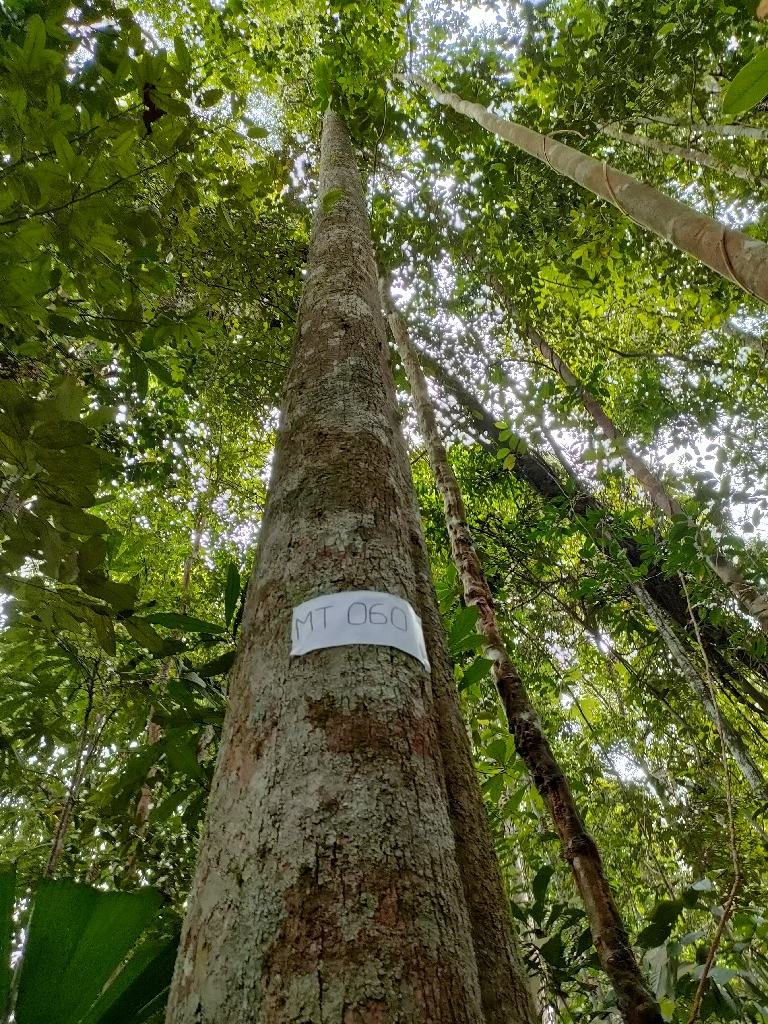 MT 060